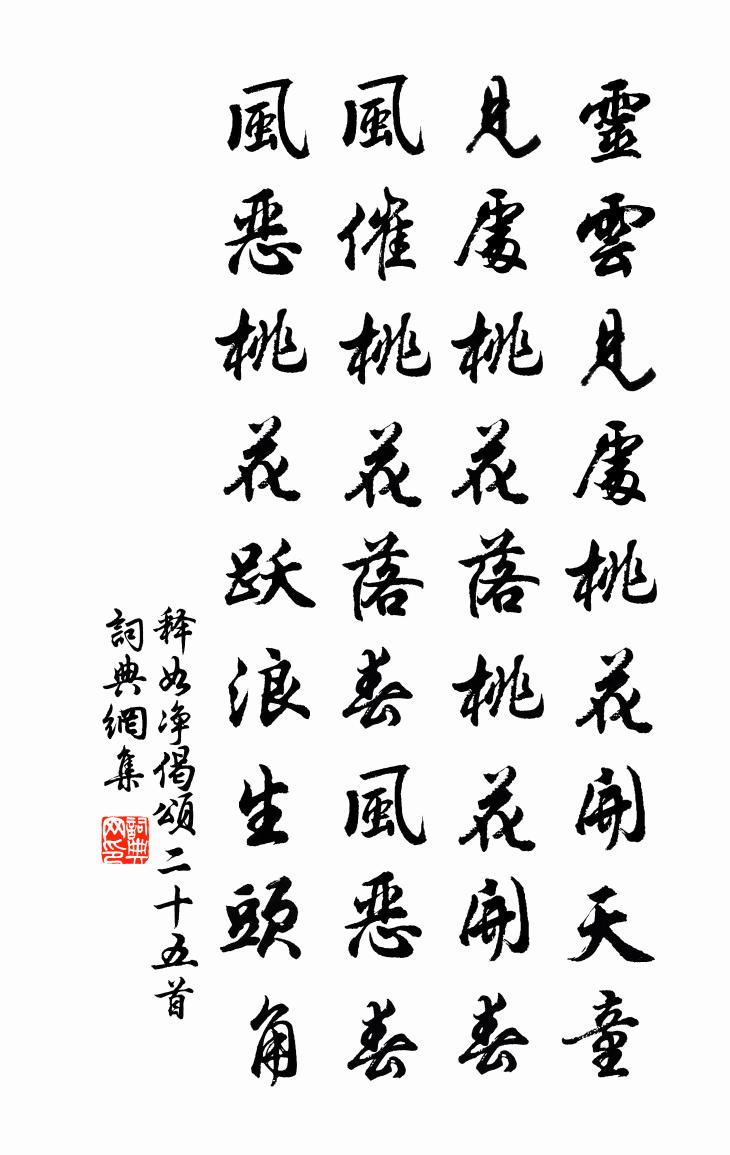 靈雲見處桃花開天童
見處桃花落桃花開春
風催桃花落春風惡春
風惡桃花跃浪生頭角
释如净偈頌二十五首
詞典網集
詞典網印